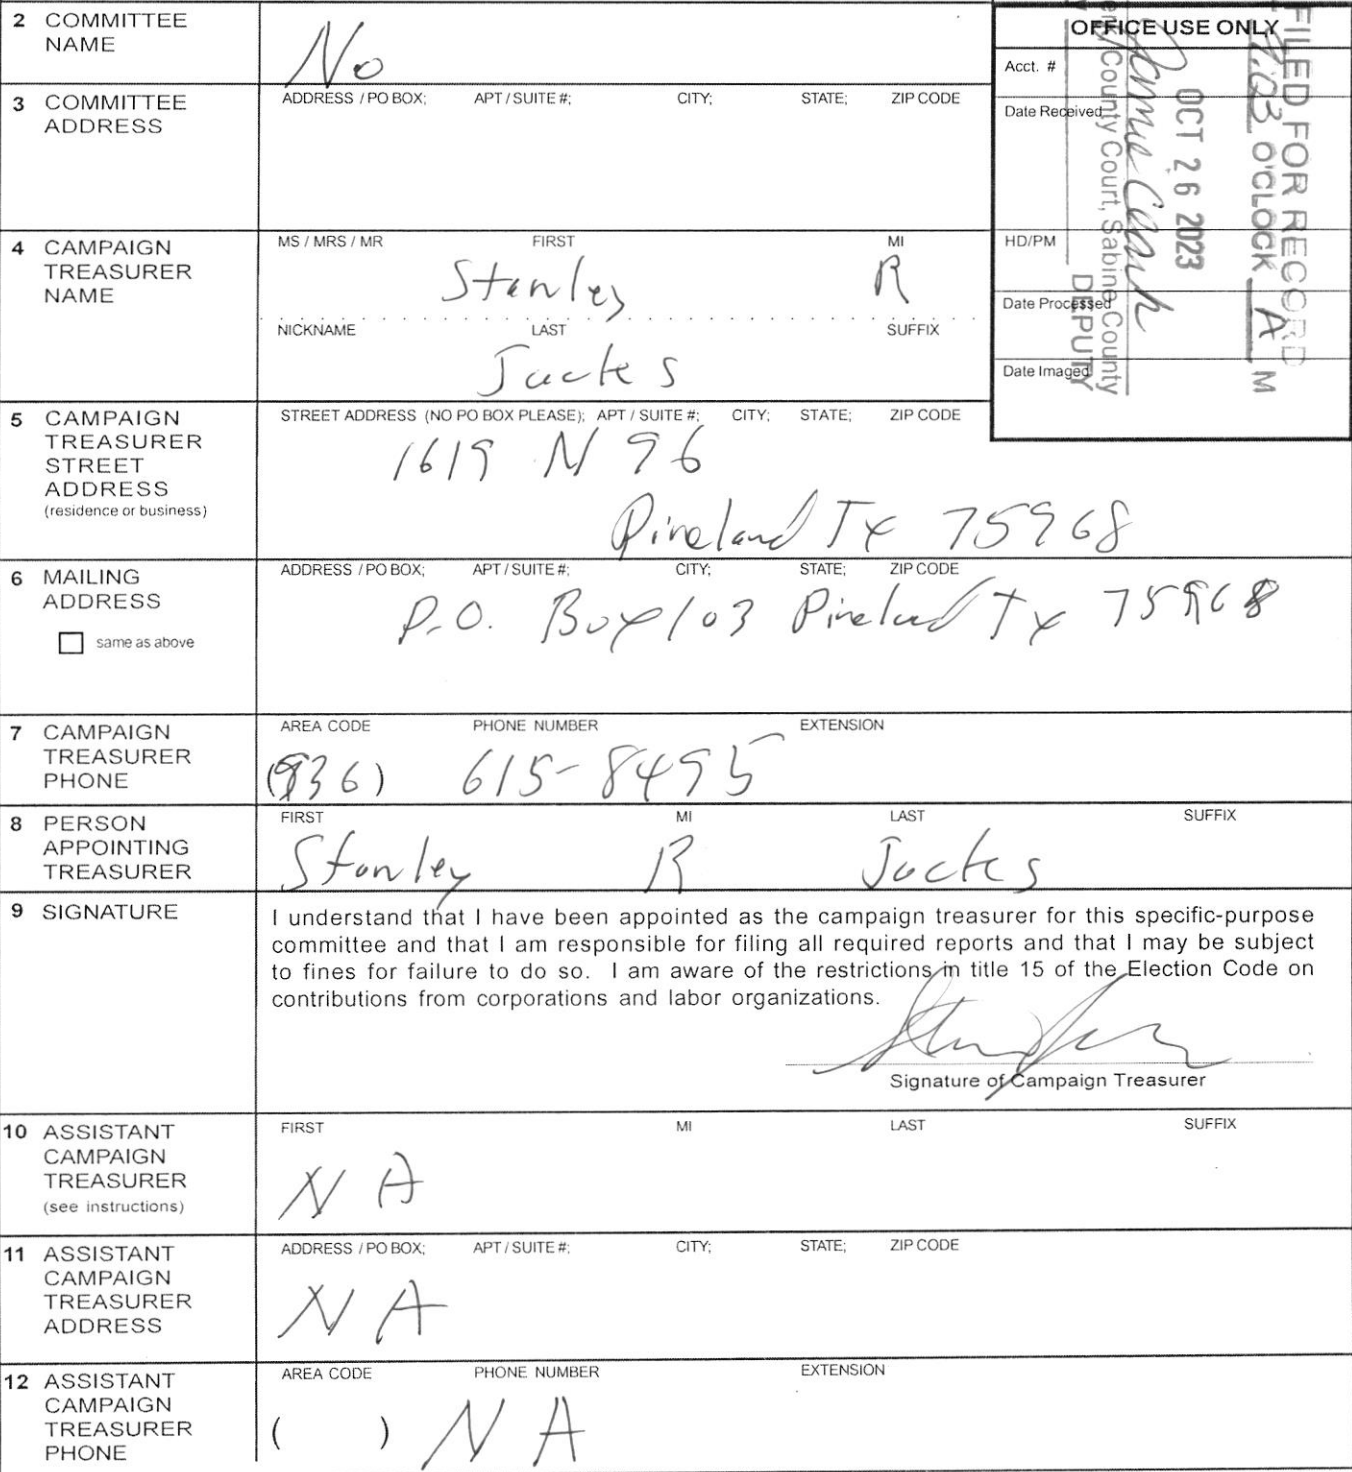 2 COMMITTEE NAME
No
OFFICE USE ONLY
Acct. #
Date Received
HD/PM
Date Processed
Date Imaged
FILED FOR RECORD
O'CLOCK A M
OCT 26 2023
County Court, Sabine County
DEPUTY
3 COMMITTEE ADDRESS
ADDRESS / PO BOX; APT / SUITE #; CITY; STATE; ZIP CODE
4 CAMPAIGN TREASURER NAME
MS / MRS / MR FIRST MI
Stanley R
NICKNAME LAST SUFFIX
Jacks
5 CAMPAIGN TREASURER STREET ADDRESS
(residence or business)
STREET ADDRESS (NO PO BOX PLEASE); APT / SUITE #; CITY; STATE; ZIP CODE
1619 N 96
Pineland Tx 75968
6 MAILING ADDRESS
same as above
ADDRESS / PO BOX; APT / SUITE #; CITY; STATE; ZIP CODE
P.O. Box 103 Pineland Tx 75968
7 CAMPAIGN TREASURER PHONE
AREA CODE PHONE NUMBER EXTENSION
(936) 615-8495
8 PERSON APPOINTING TREASURER
FIRST MI LAST SUFFIX
Stanley R Jacks
9 SIGNATURE
I understand that I have been appointed as the campaign treasurer for this specific-purpose
committee and that I am responsible for filing all required reports and that I may be subject
to fines for failure to do so. I am aware of the restrictions in title 15 of the Election Code on
contributions from corporations and labor organizations.
Signature of Campaign Treasurer
10 ASSISTANT CAMPAIGN TREASURER
(see instructions)
FIRST MI LAST SUFFIX
N A
11 ASSISTANT CAMPAIGN TREASURER ADDRESS
ADDRESS / PO BOX; APT / SUITE #; CITY; STATE; ZIP CODE
N A
12 ASSISTANT CAMPAIGN TREASURER PHONE
AREA CODE PHONE NUMBER EXTENSION
( ) N A